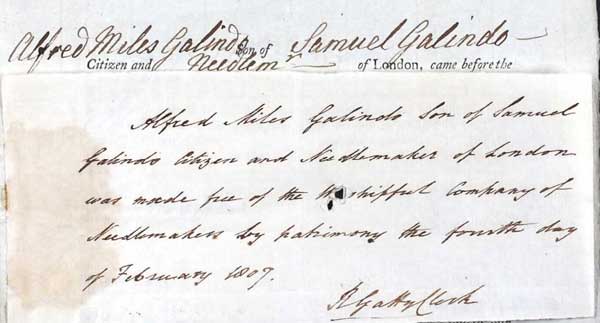 Alfred Miles Galindo Son of Samuel Galindo
Citizen and Needlemr of London, came before the
Alfred Miles Galindo Son of Samuel
Galindo Citizen and Needlemaker of London
was made free of the Worshipful Company of
Needlemakers by patrimony the fourth day
of February 1807.
R Gatty Clerk